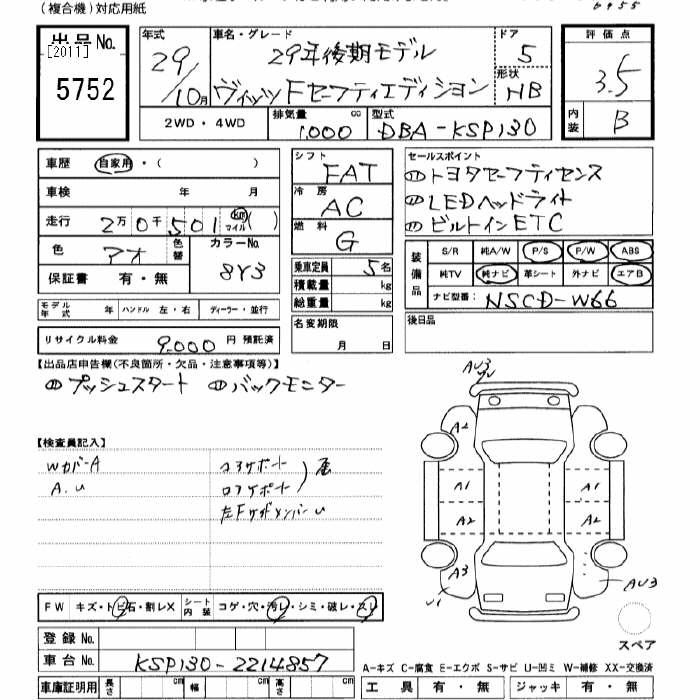 (複合機)対応用紙
出品No.
[2011]
5752
年式 車名・グレード ドア 評価点
29/10月 29年後期モデル 5 3.5
ヴィッツ Fセーフティエディション 形状 HB
2WD・4WD 排気量 1000 cc 型式 DBA-KSP130 内装 B
車歴 自家用・( )
車検 年 月
走行 2万0千501 km マイル ( )
色 アオ 色替 カラーNo. 8Y3
保証書 有・無
シフト FAT
冷房 AC
燃料 G
乗車定員 5名
積載量 kg
総重量 kg
セールスポイント
⑪トヨタセーフティセンス
⑪LEDヘッドライト
⑪ビルトインETC
装備品 S/R 純A/W P/S P/W ABS
純TV 純ナビ 革シート 外ナビ エアB
ナビ型番: NSCD-W66
モデル年式 年 ハンドル 左・右 ディーラー・並行
リサイクル料金 9,000 円 預託済
名変期限 月 日
後日品
【出品店申告欄(不良箇所・欠品・注意事項等)】
⑪プッシュスタート ⑪バックモニター
【検査員記入】
Wカバー A コアサポート
A.U ロアサポート
左Fサイドメンバー U
AU3
A2
A1 A1
A2 A2
A3 AU3
U1
FW キズ・トビ石・割レX シート内装 コゲ・穴・汚レ・シミ・破レ・スレ
スペア
登録No.
車台No. KSP130-2214857
A-キズ C-腐食 E-エクボ S-サビ U-凹ミ W-補修 XX-交換済
車庫証明用 長さ cm 幅 cm 高さ cm 工具 有・無 ジャッキ 有・無